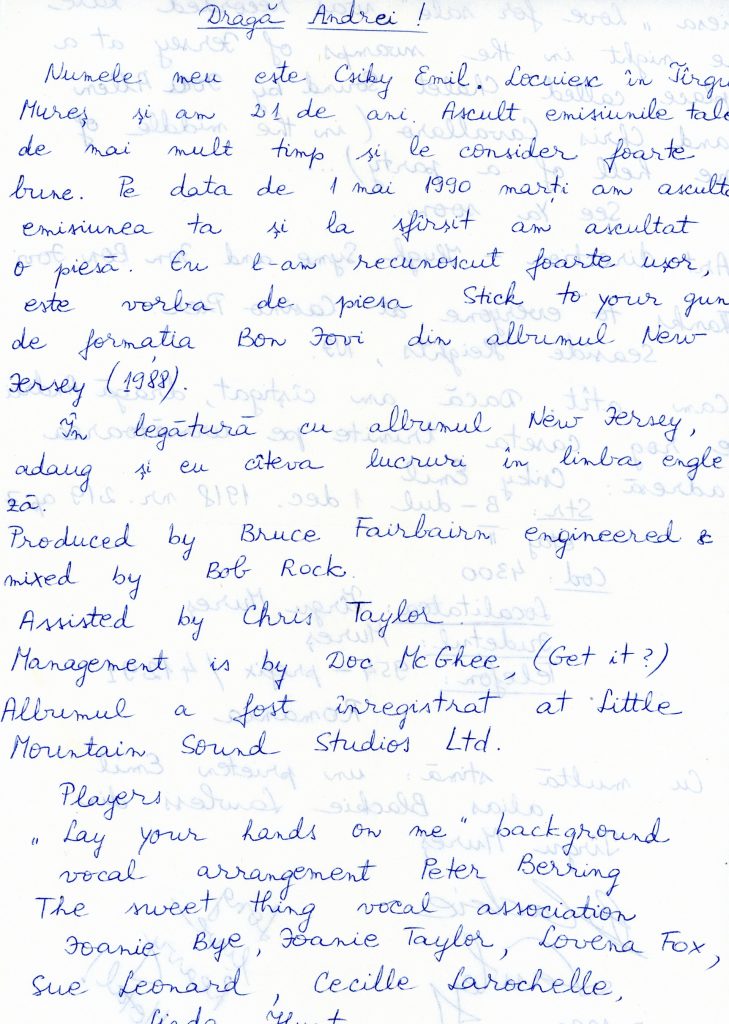 Dragă Andrei !
Numele meu este Csiky Emil. Locuiesc în Tîrgu
Mureș și am 21 de ani. Ascult emisiunile tale
de mai mult timp și le consider foarte
bune. Pe data de 1 mai 1990 marți am ascultat
emisiunea ta și la sfîrșit am ascultat
o piesă. Eu l-am recunoscut foarte ușor,
este vorba de piesa Stick to your gun
de formația Bon Jovi din albumul New
Jersey (1988).
În legătură cu albumul New Jersey,
adaug și eu cîteva lucruri în limba engle
ză.
Produced by Bruce Fairbairn engineered &
mixed by Bob Rock.
Assisted by Chris Taylor.
Management is by Doc McGhee, (Get it?)
Albumul a fost înregistrat at Little
Mountain Sound Studios Ltd.
Players
„Lay your hands on me" background
vocal arrangement Peter Berring
The sweet thing vocal association
Joanie Bye, Joanie Taylor, Lovena Fox,
Sue Leonard, Cecille Larochelle,
Linda Hunt